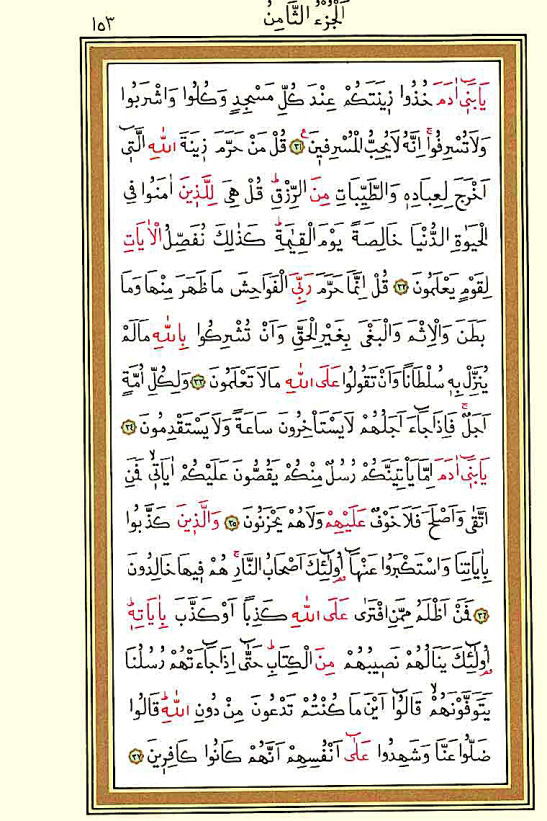 اَلْجُزْءُ الثَّامِنُ
١٥٣
يَابَنٖٓي اٰدَمَ خُذُوا زٖينَتَكُمْ عِنْدَ كُلِّ مَسْجِدٍ وَكُلُوا وَاشْرَبُوا
وَلَا تُسْرِفُواۚ اِنَّهُ لَا يُحِبُّ الْمُسْرِفٖينَࣖ ﴿٣١﴾ قُلْ مَنْ حَرَّمَ زٖينَةَ اللّٰهِ الَّتٖٓي
اَخْرَجَ لِعِبَادِهٖ وَالطَّيِّبَاتِ مِنَ الرِّزْقِؕ قُلْ هِيَ لِلَّذٖينَ اٰمَنُوا فِي
الْحَيٰوةِ الدُّنْيَا خَالِصَةً يَوْمَ الْقِيٰمَةِؕ كَذٰلِكَ نُفَصِّلُ الْاٰيَاتِ
لِقَوْمٍ يَعْلَمُونَ ﴿٣٢﴾ قُلْ اِنَّمَا حَرَّمَ رَبِّيَ الْفَوَاحِشَ مَا ظَهَرَ مِنْهَا وَمَا
بَطَنَ وَالْاِثْمَ وَالْبَغْيَ بِغَيْرِ الْحَقِّ وَاَنْ تُشْرِكُوا بِاللّٰهِ مَا لَمْ
يُنَزِّلْ بِهٖ سُلْطَانًا وَاَنْ تَقُولُوا عَلَى اللّٰهِ مَا لَا تَعْلَمُونَ ﴿٣٣﴾ وَلِكُلِّ اُمَّةٍ
اَجَلٌۚ فَاِذَا جَٓاءَ اَجَلُهُمْ لَا يَسْتَأْخِرُونَ سَاعَةً وَلَا يَسْتَقْدِمُونَ ﴿٣٤﴾
يَابَنٖٓي اٰدَمَ اِمَّا يَأْتِيَنَّكُمْ رُسُلٌ مِنْكُمْ يَقُصُّونَ عَلَيْكُمْ اٰيَاتٖيۙ فَمَنِ
اتَّقٰى وَاَصْلَحَ فَلَا خَوْفٌ عَلَيْهِمْ وَلَا هُمْ يَحْزَنُونَ ﴿٣٥﴾ وَالَّذٖينَ كَذَّبُوا
بِاٰيَاتِنَا وَاسْتَكْبَرُوا عَنْهَٓا اُو۬لٰٓئِكَ اَصْحَابُ النَّارِۚ هُمْ فٖيهَا خَالِدُونَ
﴿٣٦﴾ فَمَنْ اَظْلَمُ مِمَّنِ افْتَرٰى عَلَى اللّٰهِ كَذِبًا اَوْ كَذَّبَ بِاٰيَاتِهٖؕ
اُو۬لٰٓئِكَ يَنَالُهُمْ نَصٖيبُهُمْ مِنَ الْكِتَابِؕ حَتّٰٓى اِذَا جَٓاءَتْهُمْ رُسُلُنَا
يَتَوَفَّوْنَهُمْۙ قَالُٓوا اَيْنَ مَا كُنْتُمْ تَدْعُونَ مِنْ دُونِ اللّٰهِؕ قَالُوا
ضَلُّوا عَنَّا وَشَهِدُوا عَلٰٓى اَنْفُسِهِمْ اَنَّهُمْ كَانُوا كَافِرٖينَ ﴿٣٧﴾